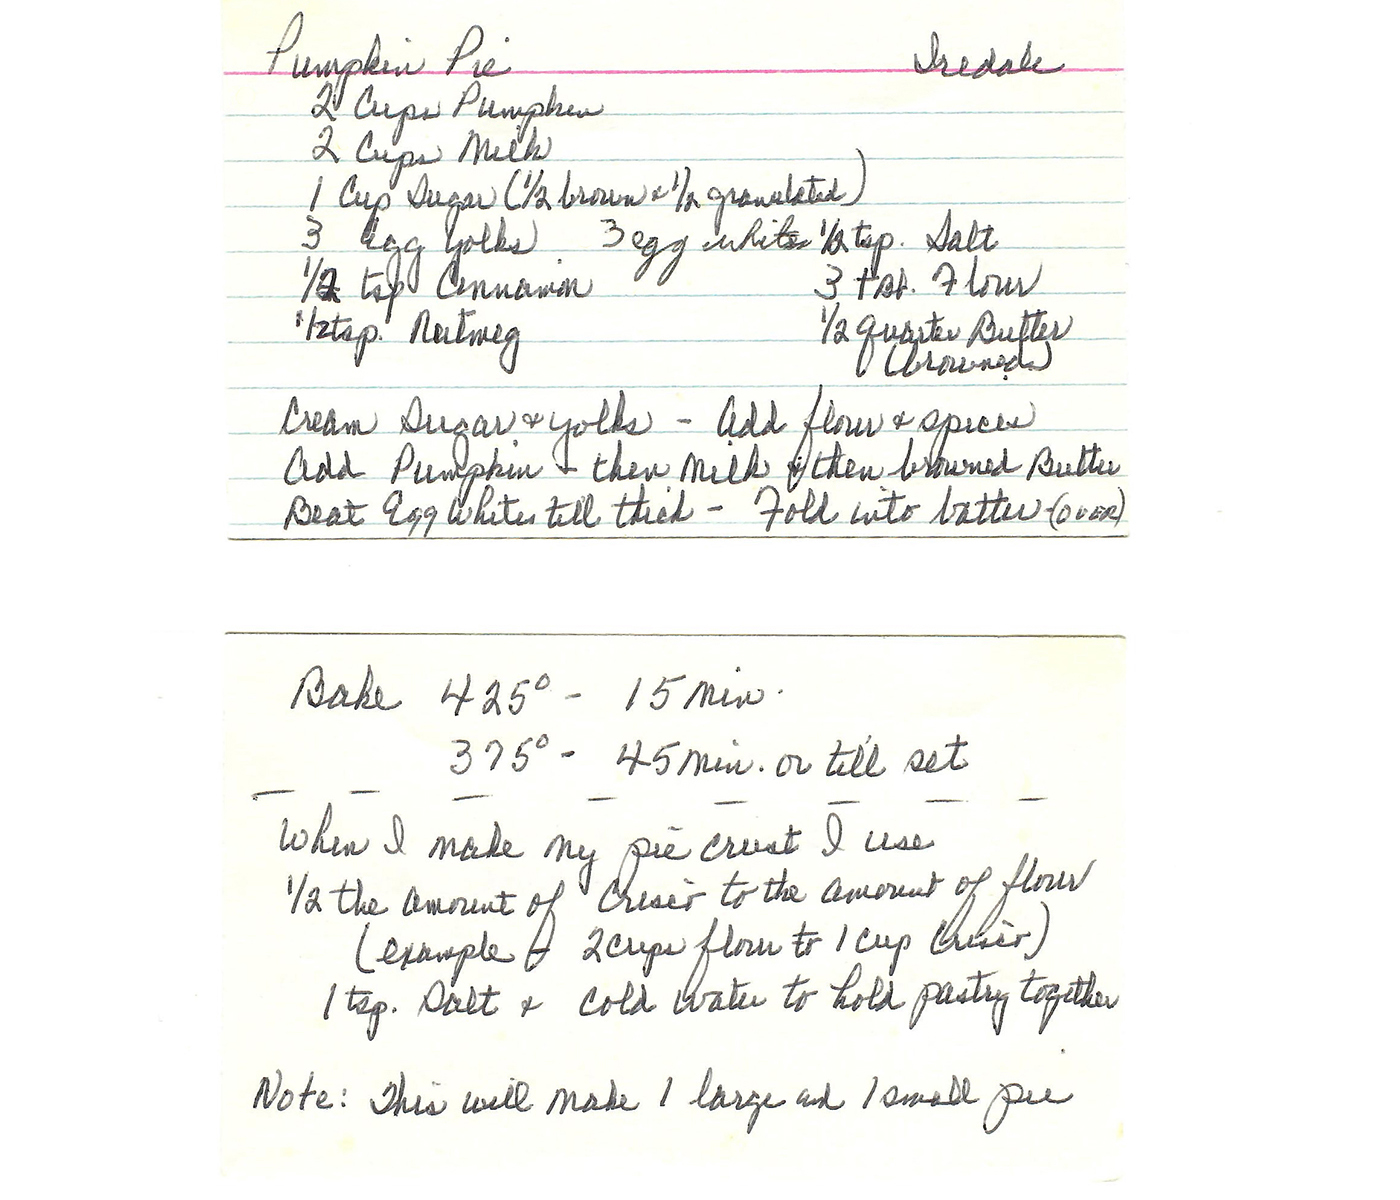 Pumpkin Pie Iredale
2 Cups Pumpkin
2 Cups Milk
1 Cup Sugar (1/2 brown & 1/2 granulated)
3 Egg Yolks 3 egg whites 1/2 tsp. Salt
1/2 tsp Cinnamon 3 tbl. Flour
1/2 tsp. Nutmeg 1/2 quarter Butter
(browned)
Cream Sugar & yolks - Add flour & spices
Add Pumpkin - then Milk & then browned Butter
Beat Egg Whites till thick - Fold into batter - (over)
Bake 425° - 15 Min.
375° - 45 Min. or till set
When I make my pie crust I use
1/2 the amount of Crisco to the amount of flour
(example - 2 cups flour to 1 cup Crisco)
1 tsp. Salt & cold water to hold pastry together
Note: This will make 1 large and 1 small pie